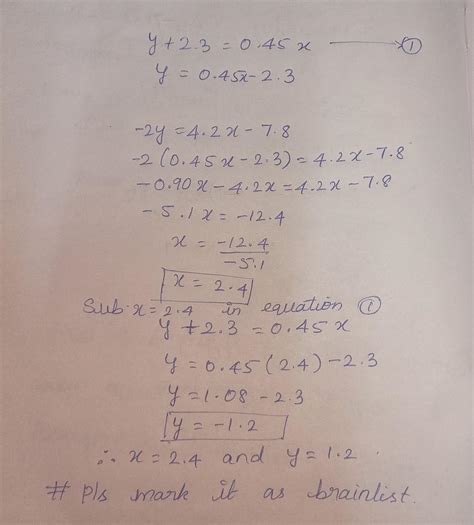 y + 2.3 = 0.45 x ⟶ ①
y = 0.45x - 2.3
-2y = 4.2x - 7.8
-2 (0.45x - 2.3) = 4.2x - 7.8
-0.90x - 4.2x = 4.2x - 7.8
-5.1x = -12.4
x = -12.4
-5.1
x = 2.4
Sub x = 2.4 in equation ①
y + 2.3 = 0.45 x
y = 0.45 (2.4) - 2.3
y = 1.08 - 2.3
y = -1.2
∴ x = 2.4 and y = 1.2.
# pls mark it as brainlist.